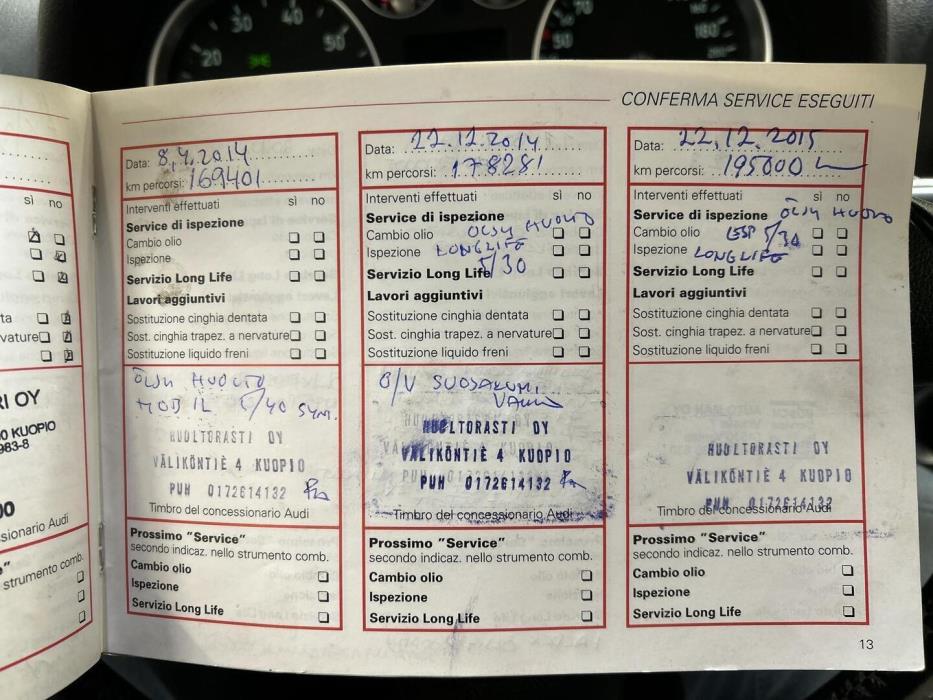 20
40
50
50
70
180
CONFERMA SERVICE ESEGUITI
sì no
ta
vature
RI OY
0 KUOPIO
983-8
00
sionario Audi
strumento comb.
Data: 8,4.2014
km percorsi: 169401
Interventi effettuati sì no
Service di ispezione
Cambio olio
Ispezione
Servizio Long Life
Lavori aggiuntivi
Sostituzione cinghia dentata
Sost. cinghia trapez. a nervature
Sostituzione liquido freni
ÖLJY HUOLTO
MOBIL 5/40 SYN.
HUOLTORASTI OY
VÄLIKÖNTIÈ 4 KUOPIO
PUH 0172614132
Timbro del concessionario Audi
Prossimo "Service"
secondo indicaz. nello strumento comb.
Cambio olio
Ispezione
Servizio Long Life
Data: 11.12.2014
km percorsi: 178281
Interventi effettuati sì no
Service di ispezione
Cambio olio ÖLJY HUOLTO
Ispezione LONGLIFE
Servizio Long Life 5/30
Lavori aggiuntivi
Sostituzione cinghia dentata
Sost. cinghia trapez. a nervature
Sostituzione liquido freni
Ö/V SUODAKUMI
HUOLTORASTI OY
VÄLIKÖNTIÈ 4 KUOPIO
PUH 0172614132
Timbro del concessionario Audi
Prossimo "Service"
secondo indicaz. nello strumento comb.
Cambio olio
Ispezione
Servizio Long Life
Data: 22,12.2015
km percorsi: 195000
Interventi effettuati sì no
Service di ispezione ÖLJY HUOLTO
Cambio olio ESP 5/30
Ispezione LONGLIFE
Servizio Long Life
Lavori aggiuntivi
Sostituzione cinghia dentata
Sost. cinghia trapez. a nervature
Sostituzione liquido freni
HUOLTORASTI OY
VÄLIKÖNTIÈ 4 KUOPIO
PUH 0172614132
Timbro del concessionario Audi
Prossimo "Service"
secondo indicaz. nello strumento comb.
Cambio olio
Ispezione
Servizio Long Life
13